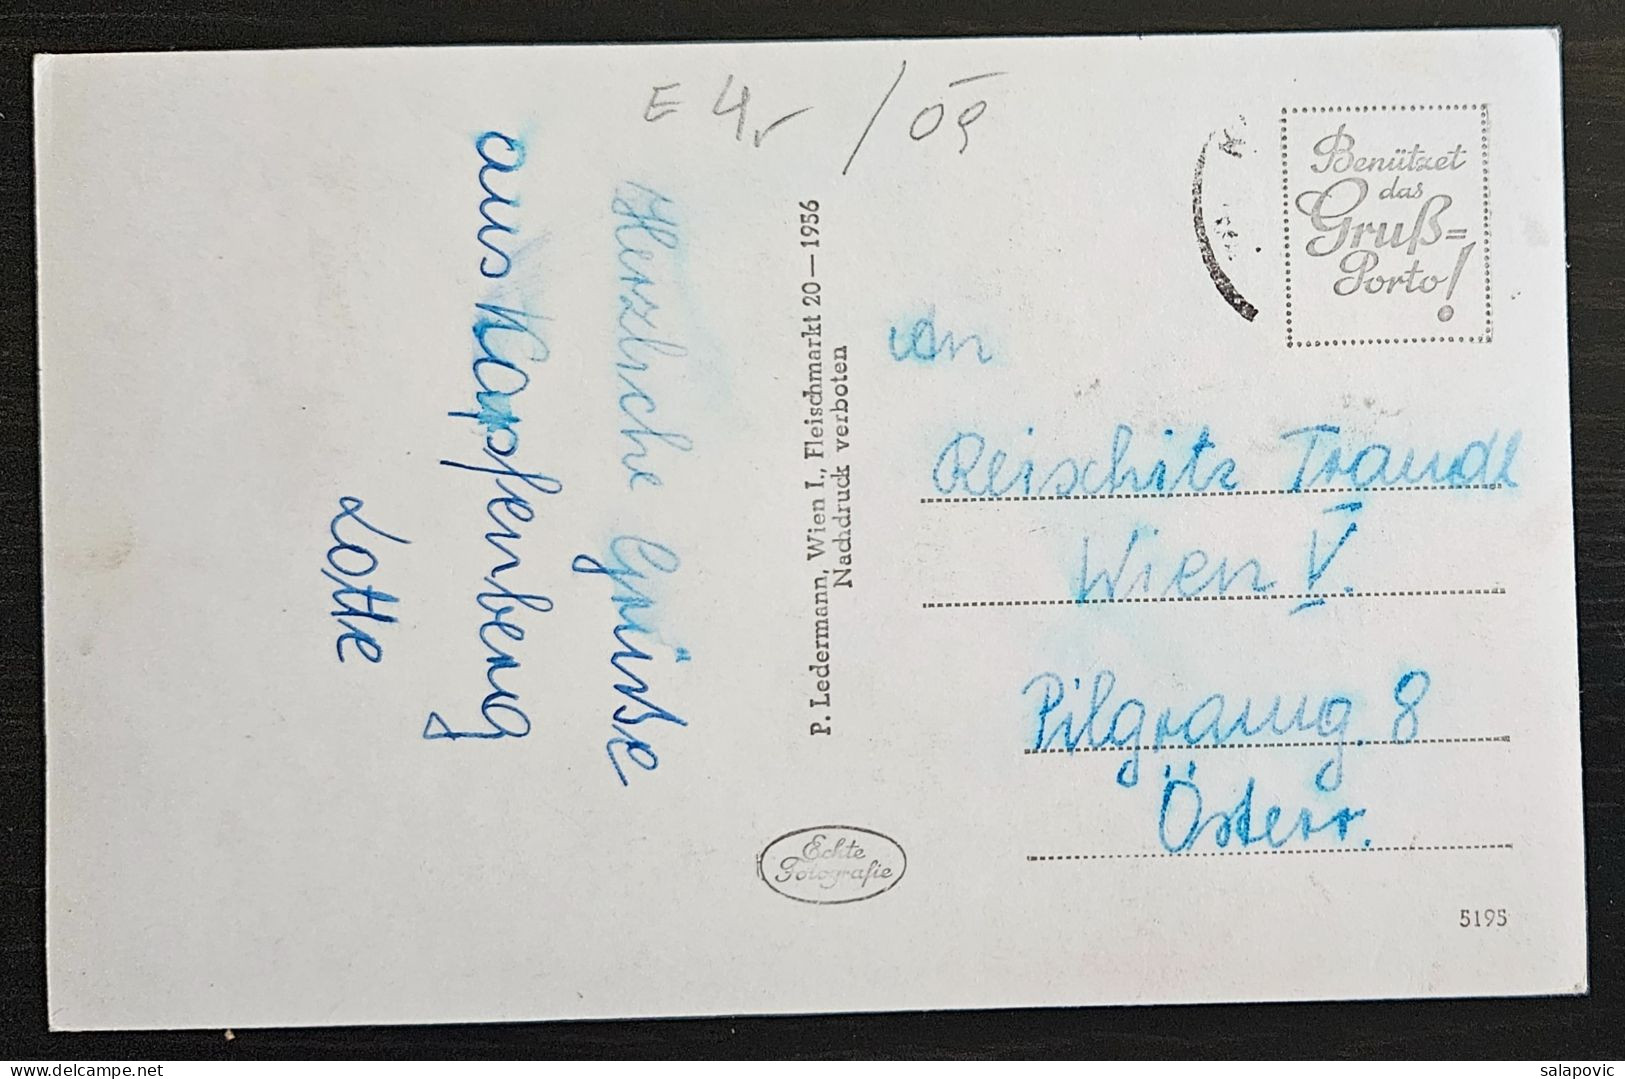 E 4,- / 09
Herzliche Grüße
aus Kapfenberg
Lotte
P. Ledermann, Wien I., Fleischmarkt 20 — 1956
Nachdruck verboten
Echte
Fotografie
Benützet
das
Gruß=
Porto!
An
Reischitz Traudl
Wien V.
Pilgramg. 8
Österr.
5195
salapovic